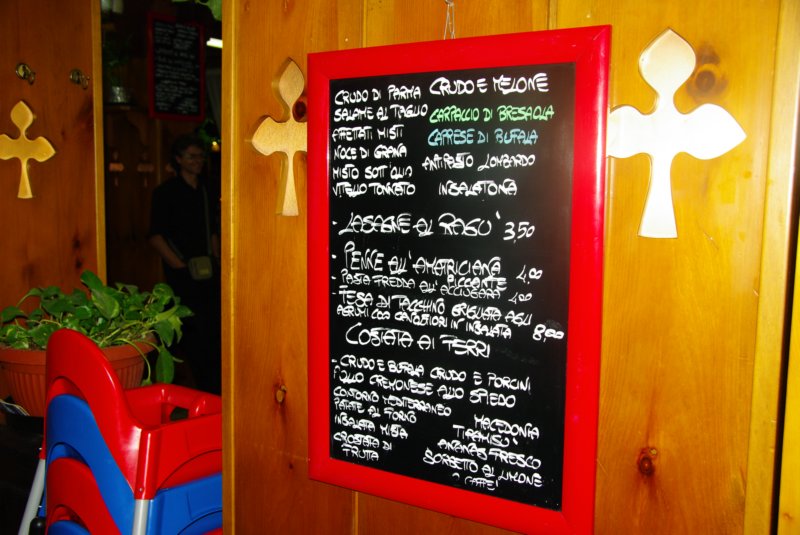 CRUDO DI PARMA CRUDO E MELONE
SALAME AL TAGLIO CARPACCIO DI BRESAOLA
AFFETTATI MISTI CAPRESE DI BUFALA
NOCE DI GRANA ANTIPASTO LOMBARDO
MISTO SOTT'OLIO INSALATONA
VITELLO TONNATO
- LASAGNE AL RAGU' 3,50
- PENNE ALL'AMATRICIANA 4,00
PICCANTE
- PASTA FREDDA ALL'ACCIUGARA 4,00
- TESA DI TACCHINO GRIGLIATA AGLI
AGRUMI CON POMODORI IN INSALATA 8,00
COSTATA AI FERRI
- CRUDO E BUFALA CRUDO E PORCINI
POLLO CREMONESE ALLO SPIEDO
CONTORNO MEDITERRANEO
PATATE AL FORNO MACEDONIA
INSALATA MISTA TIRAMISU'
CROSTATA DI ANANAS FRESCO
FRUTTA SORBETTO AL LIMONE
CAFFE'